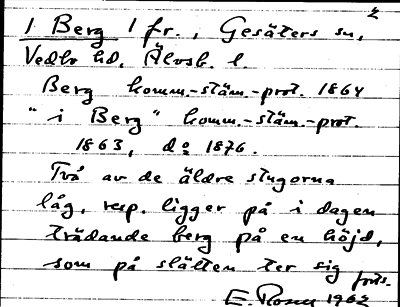 2
1 Berg 1 fr., Gesäters sn,
Vedbo hd, Älvsb. l.
Berg komm.-stäm.-prot. 1864
"i Berg" komm.-stäm.-prot.
1863, do 1876.
Två av de äldre stugorna
låg, resp. ligger på i dagen
trädande berg på en höjd,
som på slätten ter sig forts.
E. Rosell 1962